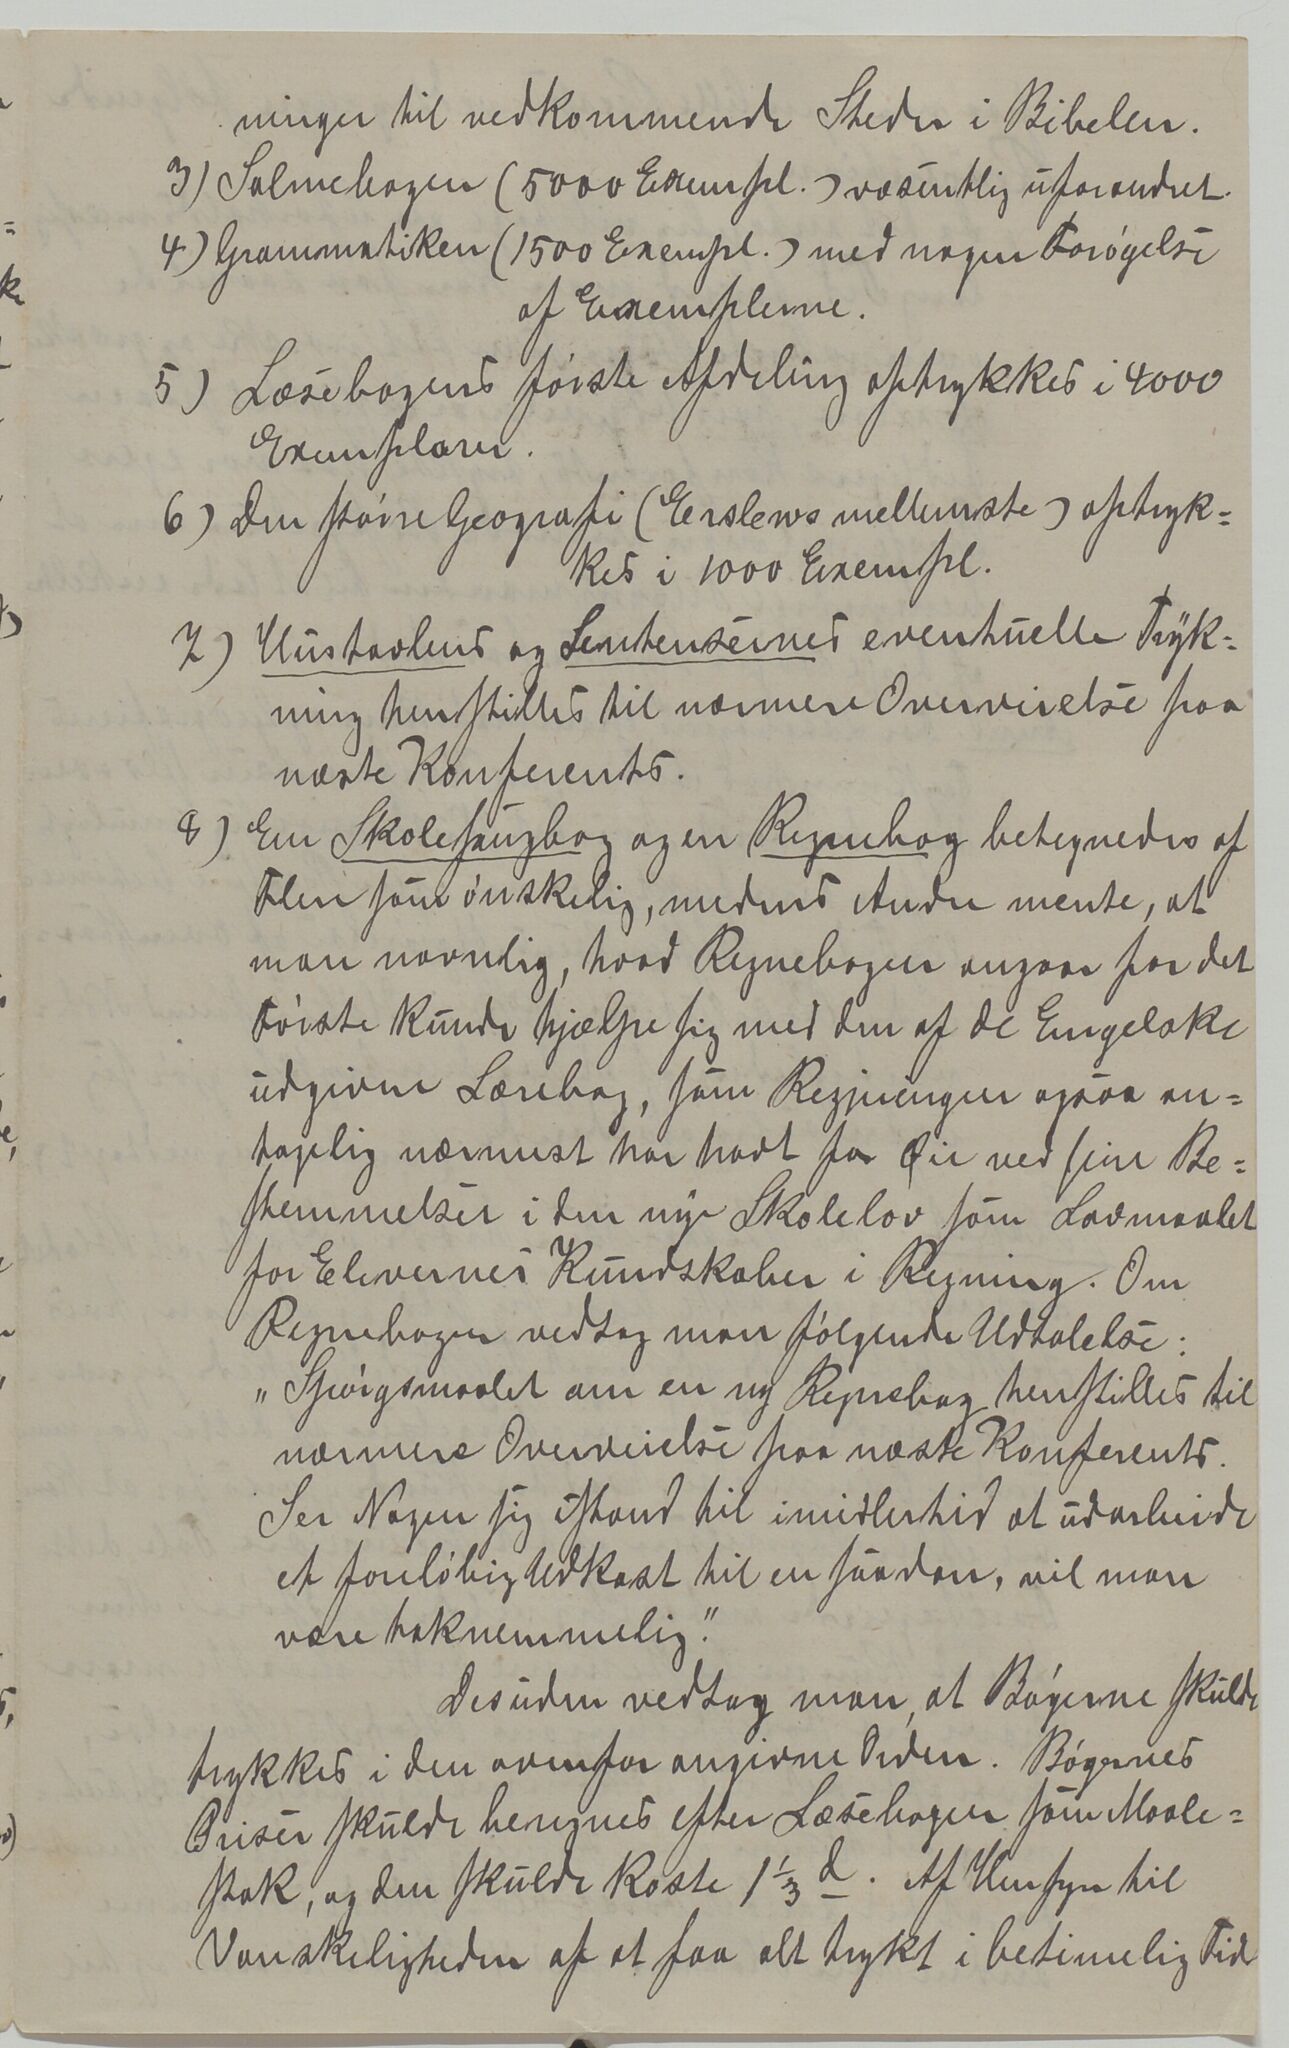 ninger til vedkommende Steder i Bibelen.
3) Salmebogen (5000 Exempl.) væsentlig uforandret.
4) Grammatiken (1500 Exempl.) med nogen Forøgelse
af Exemplerne.
5) Læsebogens første Afdeling optrykkes i 4000
Exemplarer.
6) Den større Geografi (Erslews mellemste) optryk=
kes i 1000 Exempl.
7) Hustavlens og Sentensernes eventuelle Tryk=
ning henstilles til nærmere Overveielse paa
næste Konferents.
8) En Skolesangbog og en Regnebog betegnedes af
Flere som ønskelig, medens Andre mente, at
man navnlig, hvad Regnebogen angaar for det
Første kunde hjælpe sig med den af de Engelske
udgivne Lærebog, som Regjeringen ogsaa an=
tagelig nærmest har havt for Øie ved sine Be=
stemmelser i den nye Skolelov som Lavmaalet
for Elevernes Kundskaber i Regning. Om
Regnebogen vedtog man følgende Udtalelse:
"Spørgsmaalet om en ny Regnebog henstilles til
nærmere Overveielse paa næste Konferents.
Ser Nogen sig istand til imidlertid at udarbeide
et foreløbig Udkast til en saadan, vil man
være taknemmelig."
Desuden vedtog man, at Bøgerne skulde
trykkes i den ovenfor angivne Orden. Bøgernes
Priser skulde beregnes efter Læsebogen som Maale=
stok, og den skulde koste 1 1/3 d. Af Hensyn til
Vanskeligheden af at faa alt trykt i betimelig Tid